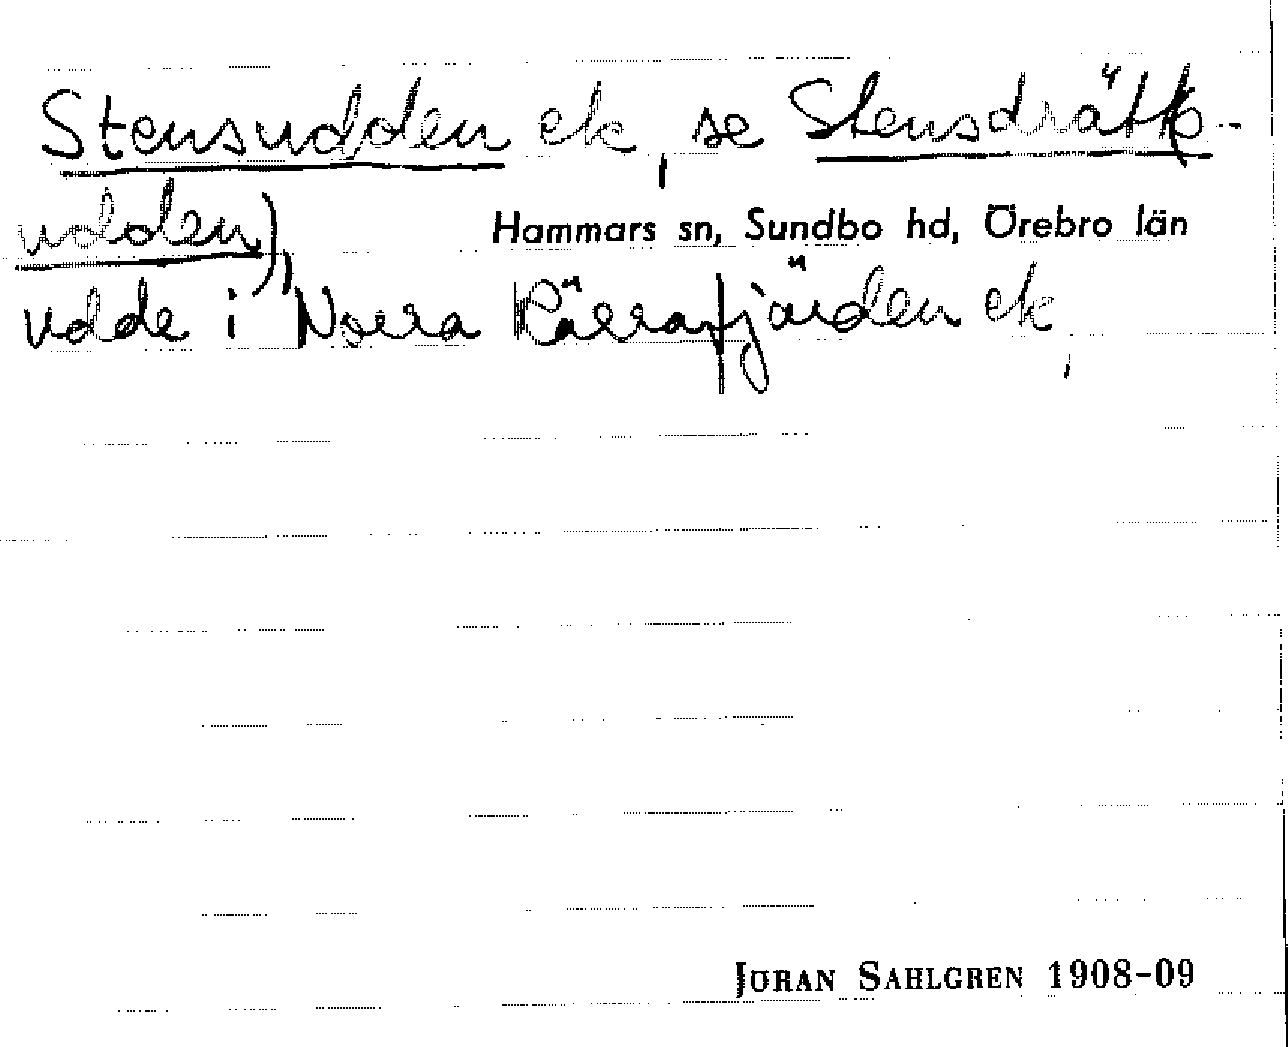 Stensudden ek, se Stensdrätt-
udden),
Hammars sn, Sundbo hd, Örebro län
udde i Norra Kärrafjärden ek,
JÖRAN SAHLGREN 1908-09